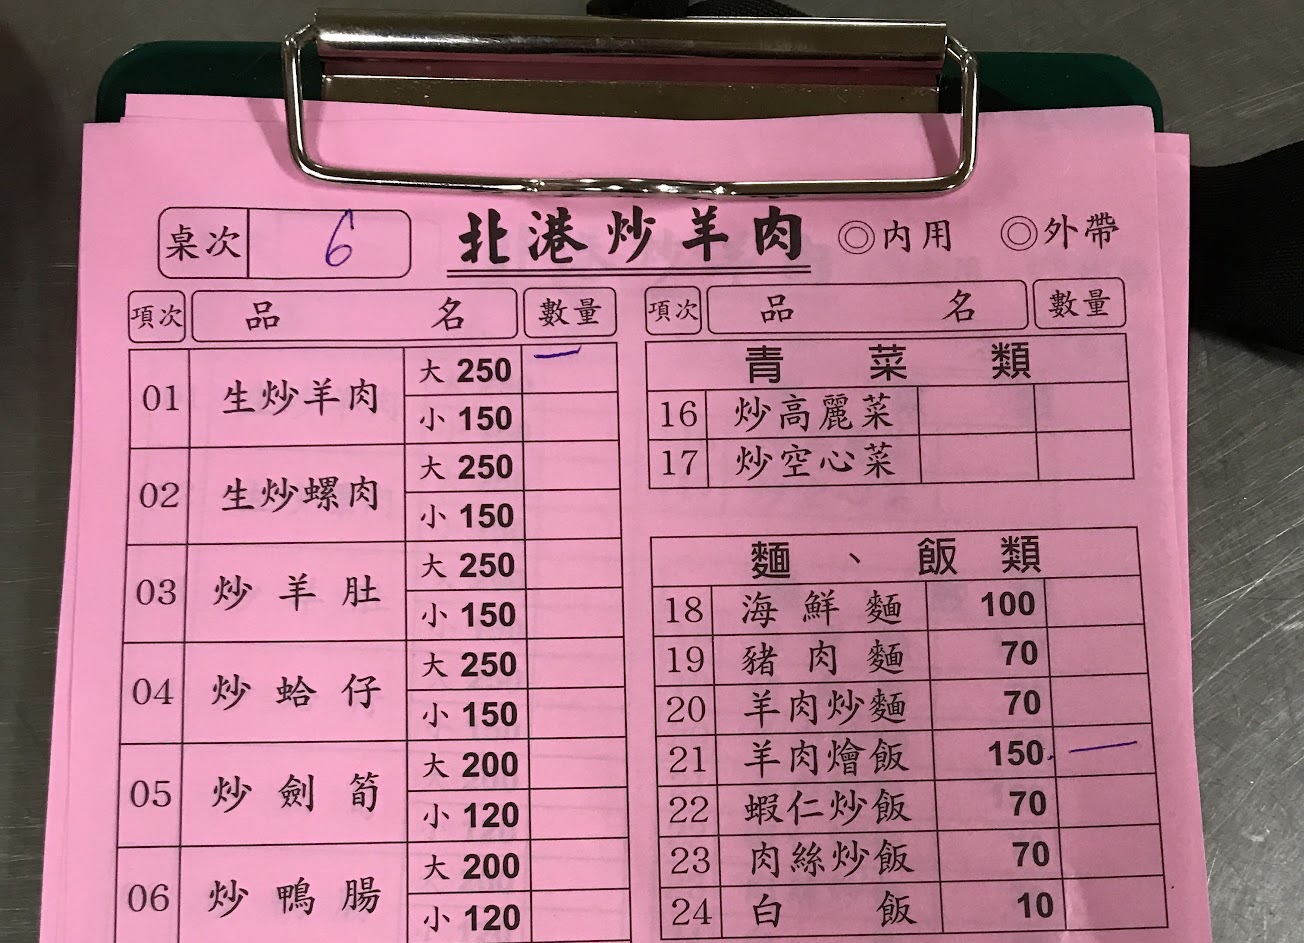 桌次 6 北港炒羊肉 ◎內用 ◎外帶
項次 品名 數量
01 生炒羊肉 大 250 一
小 150
02 生炒螺肉 大 250
小 150
03 炒羊肚 大 250
小 150
04 炒蛤仔 大 250
小 150
05 炒劍筍 大 200
小 120
06 炒鴨腸 大 200
小 120
項次 品名 數量
青菜類
16 炒高麗菜
17 炒空心菜
麵、飯類
18 海鮮麵 100
19 豬肉麵 70
20 羊肉炒麵 70
21 羊肉燴飯 150 一
22 蝦仁炒飯 70
23 肉絲炒飯 70
24 白飯 10